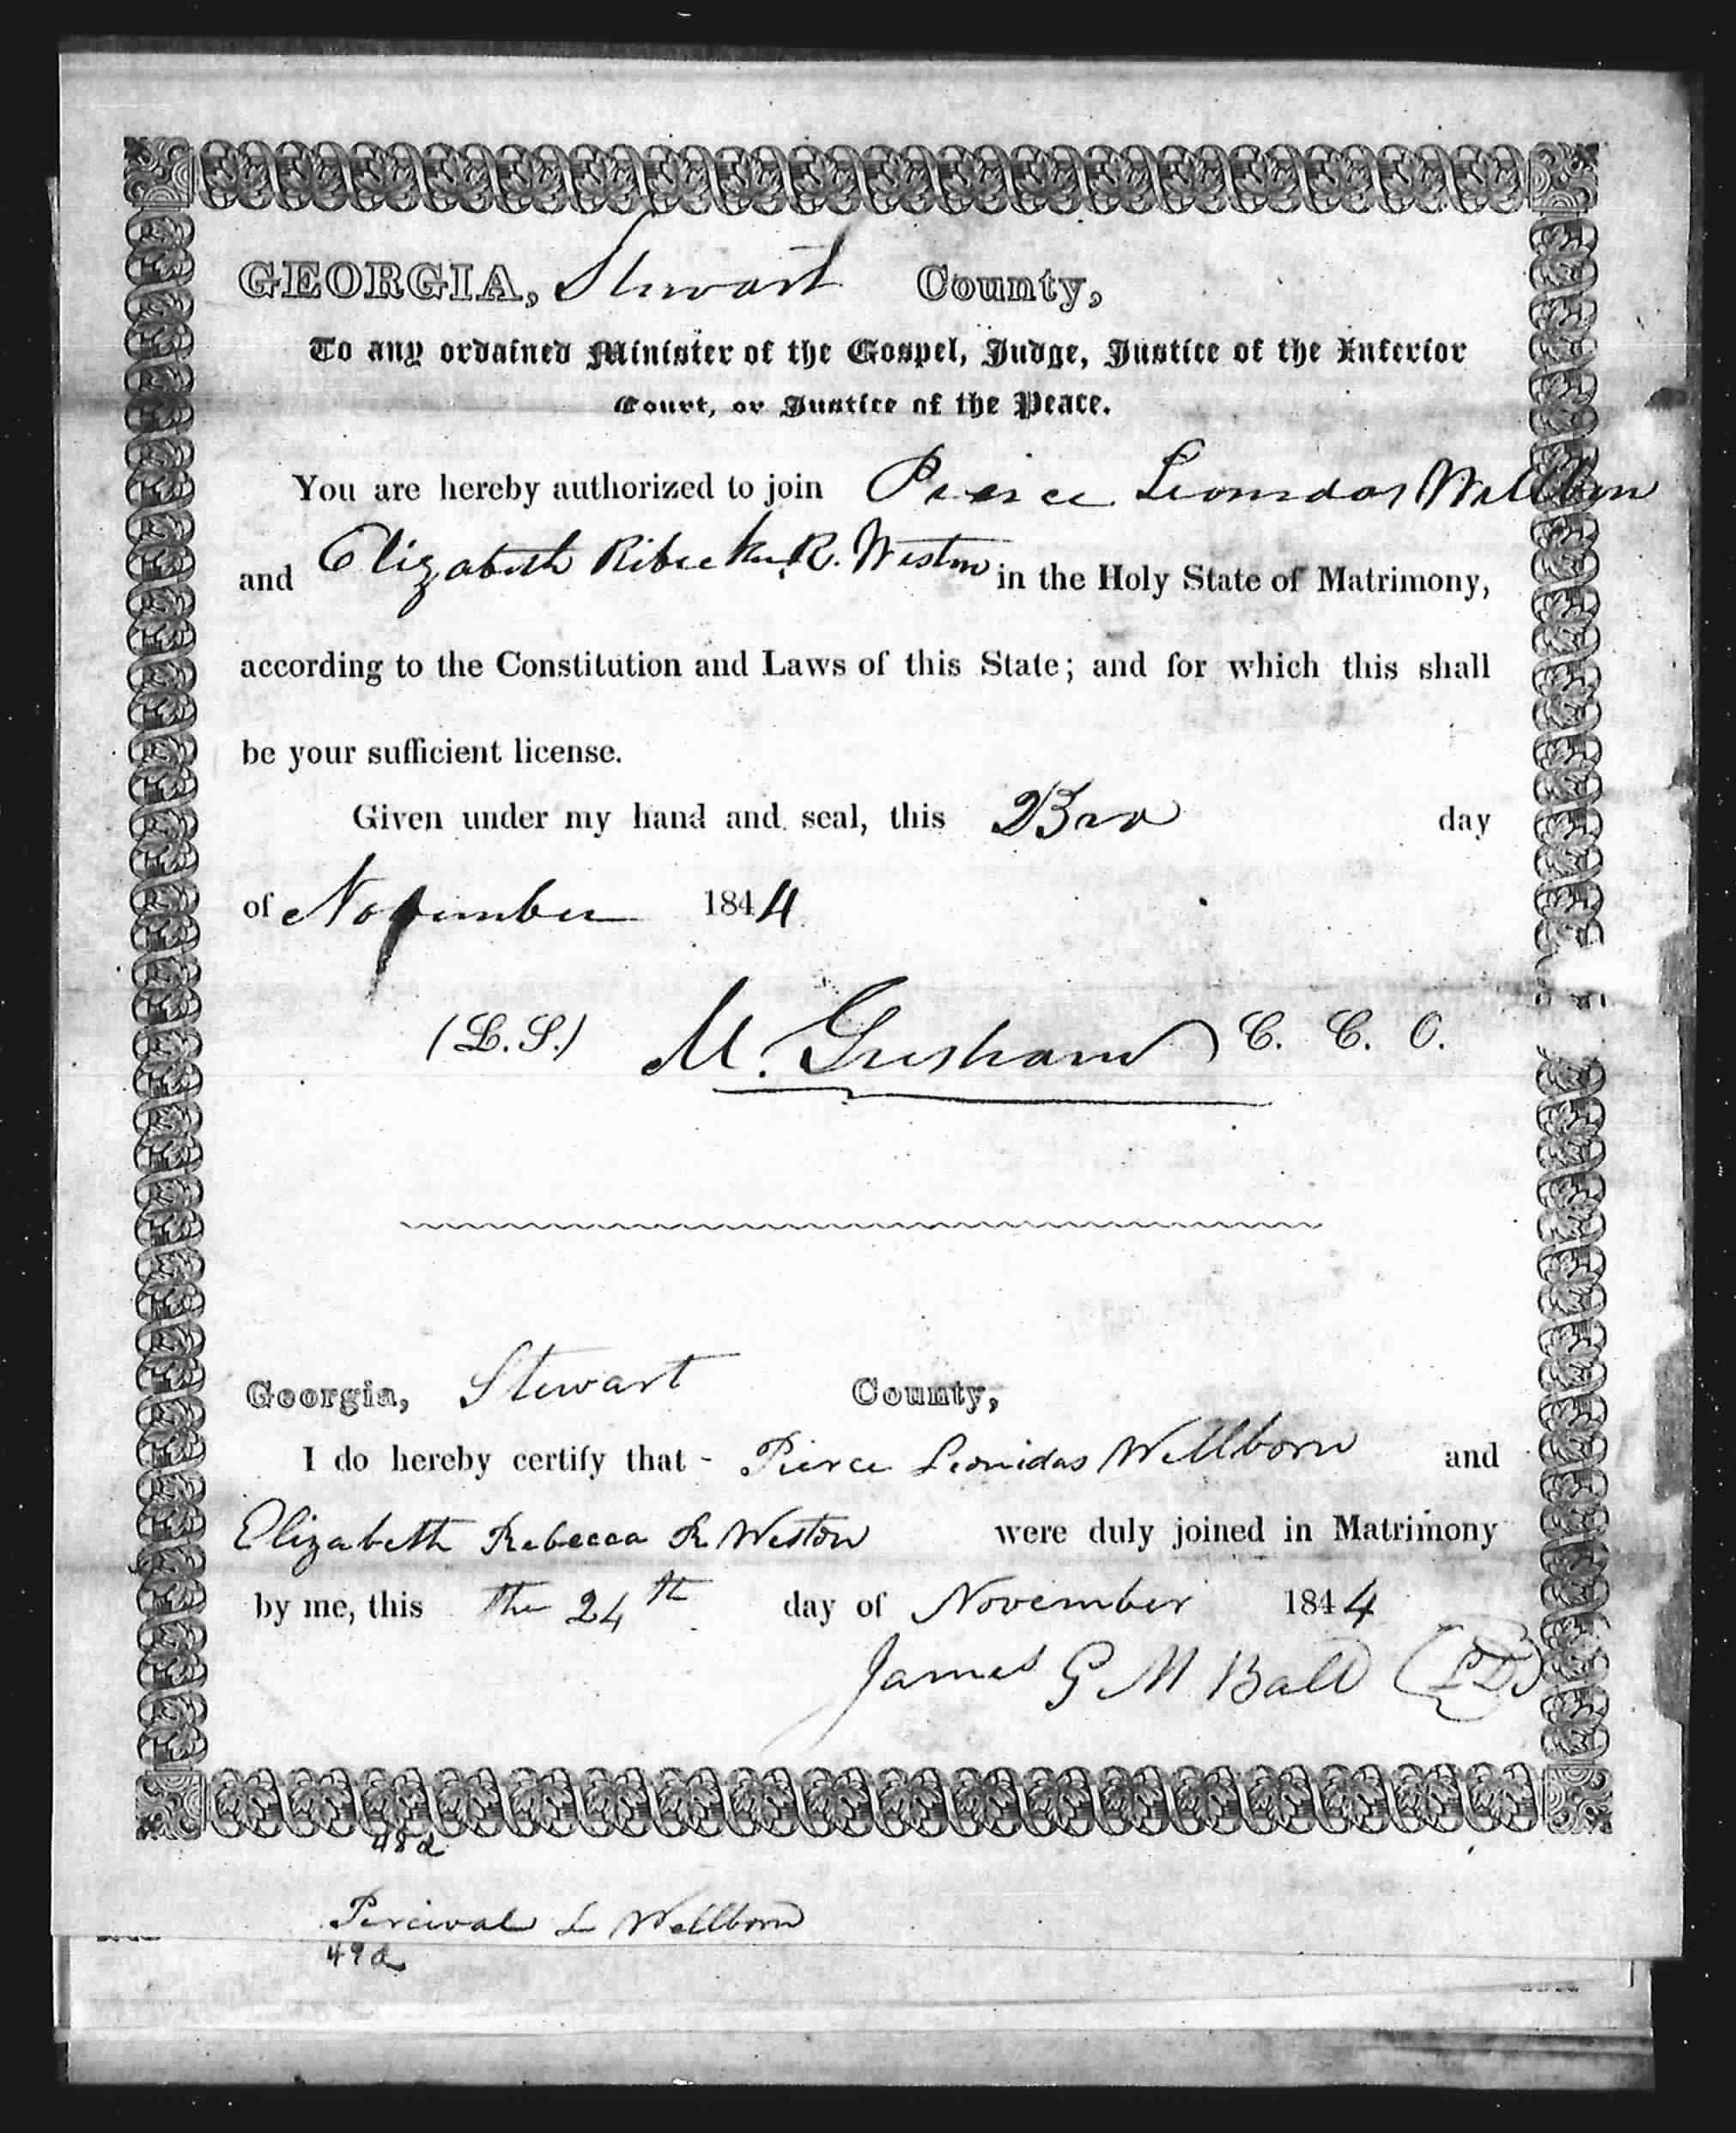 GEORGIA, Stewart County,
To any ordained Minister of the Gospel, Judge, Justice of the Inferior
Court, or Justice of the Peace.
You are hereby authorized to join Pierce Leonidas Wellborn
and Elizabeth Ribecker R. Weston in the Holy State of Matrimony,
according to the Constitution and Laws of this State; and for which this shall
be your sufficient license.
Given under my hand and seal, this 23rd day
of November 1844
(L.S.) M. Gresham C. C. O.
Georgia, Stewart County,
I do hereby certify that - Pierce Leonidas Wellborn and
Elizabeth Rebecca R Weston were duly joined in Matrimony
by me, this the 24th day of November 1844
James G M Ball
48d
Percival L Wellborn
49d